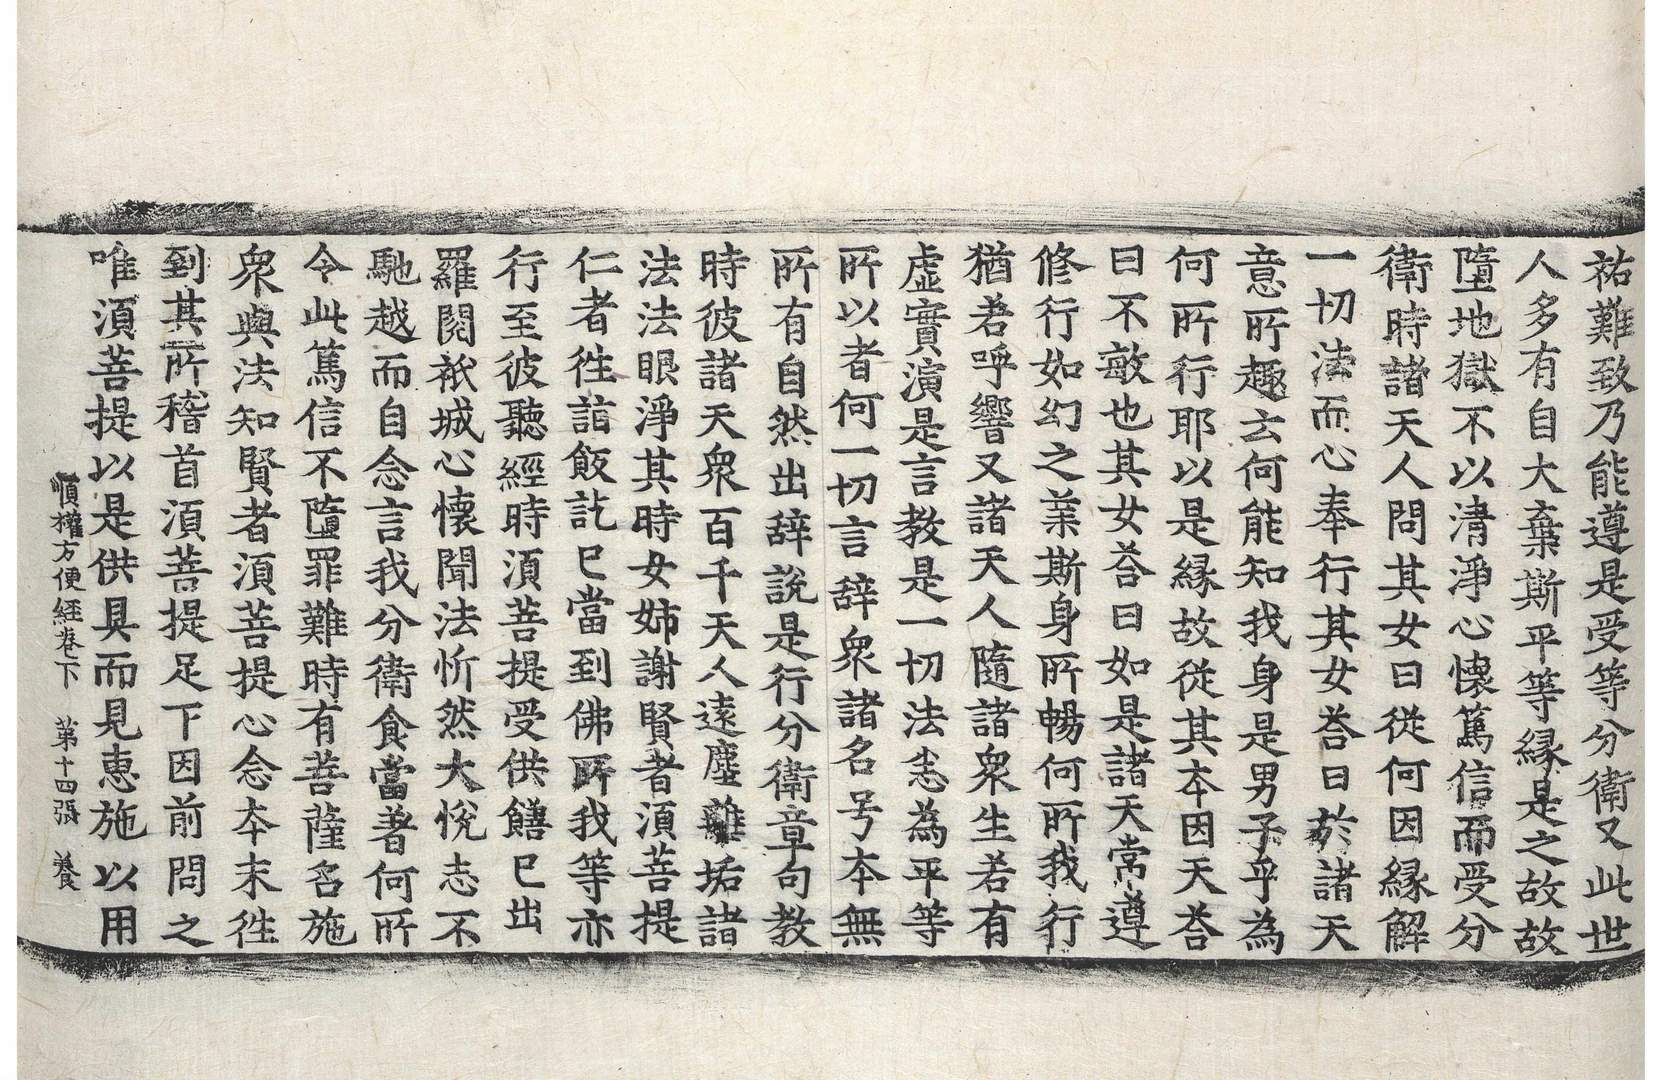 祐難致乃能遵是受等分衛又此世
人多有自大棄斯平等縁是之故故
墮地獄不以清淨心懷篤信而受分
衛時諸天人問其女曰從何因縁解
一切法而心奉行其女荅曰於諸天
意所趣云何能知我身是男子乎為
何所行耶以是縁故從其本因天荅
曰不敢也其女荅曰如是諸天常遵
修行如幻之業斯身所暢何所我行
猶若呼響又諸天人隨諸衆生若有
虛實演是言教是一切法悉為平等
所以者何一切言辞衆諸名号本無
所有自然出辞說是行分衛章句教
時彼諸天衆百千天人遠塵離垢諸
法法眼淨其時女姉謝賢者湏菩提
仁者徃詣飯訖已當到佛所我等亦
行至彼聽經時湏菩提受供饍已出
羅閱祇城心懷聞法忻然大恱志不
馳越而自念言我分衛食當著何所
令此篤信不墮罪難時有菩薩名施
衆與法知賢者湏菩提心念本末徃
到其所稽首湏菩提足下因前問之
唯湏菩提以是供具而見惠施以用
順權方便經卷下　第十四張　養